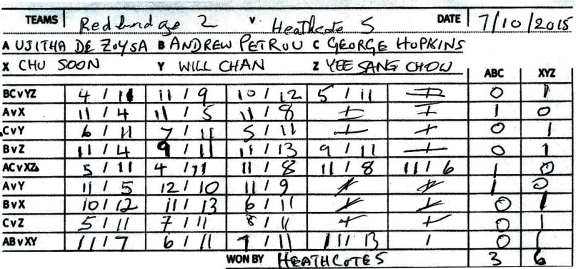 TEAMS Redbridge 2 V Heathcote 5 DATE 7/10/2015
A UJITHA DE ZOYSA B ANDREW PETROU C GEORGE HOPKINS
X CHU SOON Y WILL CHAN Z YEE SANG CHOW ABC XYZ
BCvYZ 4 / 11 11 / 9 10 / 12 5 / 11 0 1
AvX 11 / 4 11 / 5 11 / 8 1 0
CvY 6 / 11 7 / 11 5 / 11 0 1
BvZ 11 / 4 9 / 11 11 / 13 9 / 11 0 1
ACvXZ 5 / 11 4 / 11 11 / 8 11 / 8 11 / 6 1 0
AvY 11 / 5 12 / 10 11 / 9 1 0
BvX 10 / 12 11 / 13 6 / 11 0 1
CvZ 5 / 11 7 / 11 8 / 11 0 1
ABvXY 11 / 7 6 / 11 7 / 11 11 / 13 0 1
WON BY HEATHCOTE 5 3 6